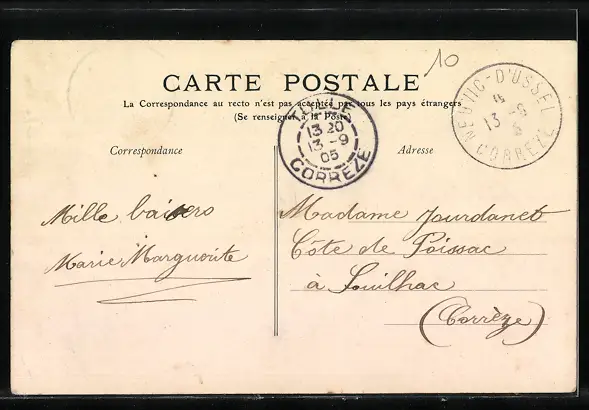 10
CARTE POSTALE
La Correspondance au recto n'est pas acceptée par tous les pays étrangers
(Se renseigner à la Poste)
TULLE
13 20
13 -9
05
CORRÈZE
NEUVIC-D'USSEL
13 -9
CORRÈZE
Correspondance
Adresse
Mille baisers
Marie Marguerite
Madame Jourdanet
Côte de Poissac
à Souilhac
(Corrèze)